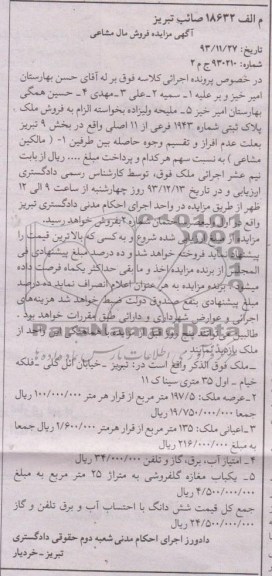 م الف ۱۸۶۳۲ صائب تبریز
آگهی مزایده فروش مال مشاعی
تاریخ: ۹۳/۱۱/۲۷
شماره: ۹۳۰۲۱۰ ج م ۲
در خصوص پرونده اجرائی کلاسه فوق بر له آقای حسن بهارستان
امیر خیز و بر علیه ۱- سمیه ۲-علی ۳-مهدی ۴- حسین همگی
بهارستان امیر خیز ۵- ملیحه ولیزاده بخواسته الزام به فروش ملک
پلاک ثبتی شماره ۱۹۴۳ فرعی از ۱۱ اصلی واقع در بخش ۹ تبریز
بعلت عدم افراز و تقسیم وجوه حاصله بین طرفین ۱- ( مالکین
مشاعی ) به نسبت سهم هر کدام و پرداخت مبلغ .... ریال از بابت
نیم عشر اجرائی ملک فوق، توسط کارشناس رسمی دادگستری
ارزیابی و در تاریخ ۹۳/۱۲/۱۳ روز چهارشنبه از ساعت ۹ الی ۱۲
ظهر از طریق مزایده در واحد اجرای احکام مدنی دادگستری تبریز
واقع در بفروش خواهد رسید.
مزایده از شروع و به کسی که بالاترین قیمت را
پیشنهاد نماید فروخته خواهد شد و ده درصد مبلغ پیشنهادی فی
المجلس از برنده مزایده اخذ و ما بقی حداکثر یکماه فرصت داده
میشود برنده مزایده به هر عنوان اعلام انصراف نماید ده درصد
مبلغ پیشنهادی بنفع صندوق دولت ضبط خواهد شد هزینه‌های
اجرائی و عوارض شهرداری و دارائی طبق مقررات خواهد بود .
طالبین روز قبل از از
ملک بازدید نمایند
-ملک فوق الذکر واقع است در: تبریز - خیابان ائل گلی - فلکه
خیام - اول ۳۵ متری سیناک ۱۱
۲-عرصه ملک: ۱۹۷/۵ متر مربع از قرار هر متر ۱۰۰/۰۰۰/۰۰۰ ریال
جمعا ۱۹/۷۵۰/۰۰۰/۰۰۰ ریال
۳-اعیانی ملک: ۱۳۵ متر مربع از قرار هرمتر ۱/۶۰۰/۰۰۰ ریال جمعا
به مبلغ ۲۱۶/۰۰۰/۰۰۰ ریال
۴- امتیاز آب، برق، گاز و تلفن ۳۴/۰۰۰/۰۰۰ ریال
۵- یکباب مغازه گلفروشی به متراژ ۲۵ متر مربع به مبلغ
۴/۵۰۰/۰۰۰/۰۰۰ ریال
جمع کل قیمت شش دانگ با احتساب آب و برق و تلفن و گاز
۲۴/۵۰۰/۰۰۰/۰۰۰ ریال
دادورز اجرای احکام مدنی شعبه دوم حقوقی دادگستری
تبریز - خردیار